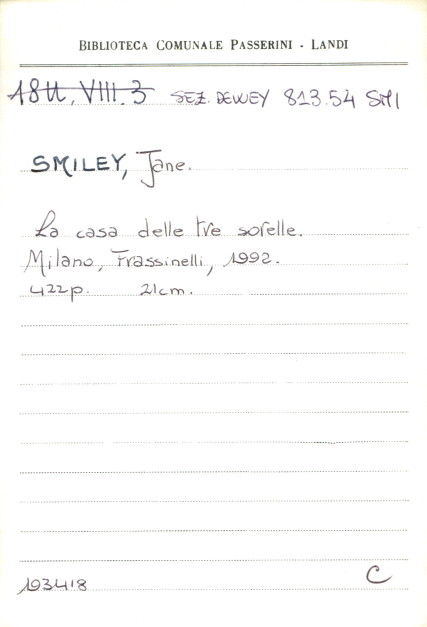 BIBLIOTECA COMUNALE PASSERINI - LANDI
18tt, VIII.3 SEZ. DEWEY 813.54 SMI
SMILEY, Jane.
La casa delle tre sorelle.
Milano, Frassinelli, 1992.
422p. 21cm.
193418
C